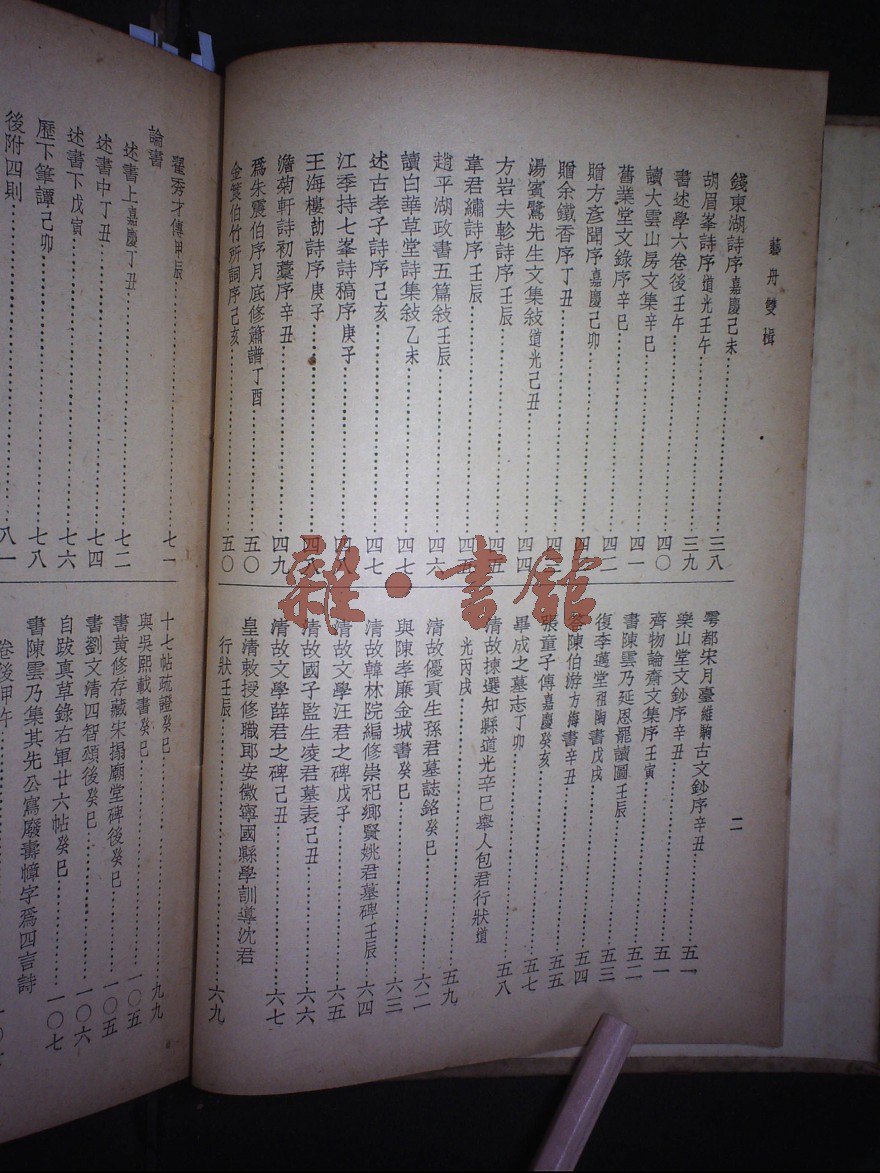 藝舟雙楫
二
錢東湖詩序嘉慶己未…三八
胡眉峯詩序道光壬午…三九
書述學六卷後壬午…四〇
讀大雲山房文集辛巳…四一
舊業堂文錄序辛巳…四二
贈方彥聞序嘉慶己卯…四二
贈余鐵香序丁丑…四三
湯賓鷺先生文集敍道光己丑…四四
方岩夫軫詩序壬辰…四五
韋君繡詩序壬辰…四五
趙平湖政書五篇敍壬辰…四六
讀白華草堂詩集敍乙未…四七
述古孝子詩序己亥…四七
江季持七峯詩稿序庚子…四八
王海樓劫詩序庚子…四八
澹菊軒詩初藁序辛丑…四九
爲朱震伯序月底修簫譜丁酉…五〇
金筤伯竹所詞序己亥…五〇
雩都宋月臺維駒古文鈔序辛丑…五一
樂山堂文鈔序辛丑…五一
齊物論齋文集序壬寅…五一
書陳雲乃延恩罷讀圖壬辰…五二
復李邁堂祖陶書戊戌…五三
答陳伯游方海書辛丑…五四
張童子傳嘉慶癸亥…五五
畢成之墓志丁卯…五七
清故揀選知縣道光辛巳舉人包君行狀道
光丙戌…五九
清故優貢生孫君墓誌銘癸巳…六二
與陳孝廉金城書癸巳…六三
清故翰林院編修崇祀鄉賢姚君墓碑壬辰…六四
清故文學汪君之碑戊子…六五
清故國子監生凌君墓表己丑…六六
清故文學薛君之碑己丑…六七
皇清敕授修職郎安徽寧國縣學訓導沈君
行狀壬辰…六九
翟秀才傳甲辰…七一
論書
述書上嘉慶丁丑…七二
述書中丁丑…七四
述書下戊寅…七六
歷下筆譚己卯…七八
後附四則…八一
十七帖疏證癸巳…九九
與吳熙載書癸巳…一〇五
書黃修存藏宋搨廟堂碑後癸巳…一〇五
書劉文清四智頌後癸巳…一〇六
自跋真草錄右軍廿六帖癸巳…一〇七
書陳雲乃集其先公寫廢壽幛字爲四言詩
卷後甲午
雜·書館